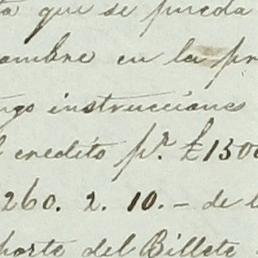 que se pueda
en la pr
instrucciones
credito pr. £1300
260. 2. 10. - de l
del Billete